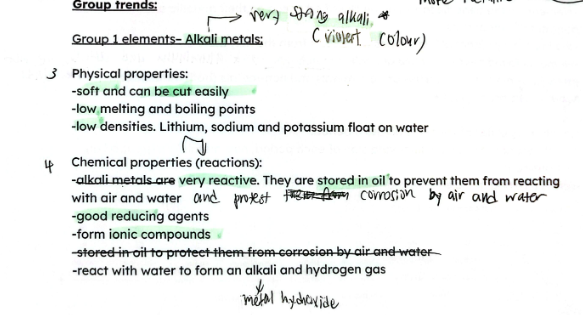 Group trends:
very strong alkali *
(violent colour)
Group 1 elements– Alkali metals:
3 Physical properties:
-soft and can be cut easily
-low melting and boiling points
-low densities. Lithium, sodium and potassium float on water
4 Chemical properties (reactions):
-alkali metals are very reactive. They are stored in oil to prevent them from reacting
with air and water and protest from corrosion by air and water
-good reducing agents
-form ionic compounds
-stored in oil to protect them from corrosion by air and water
-react with water to form an alkali and hydrogen gas
metal hydroxide